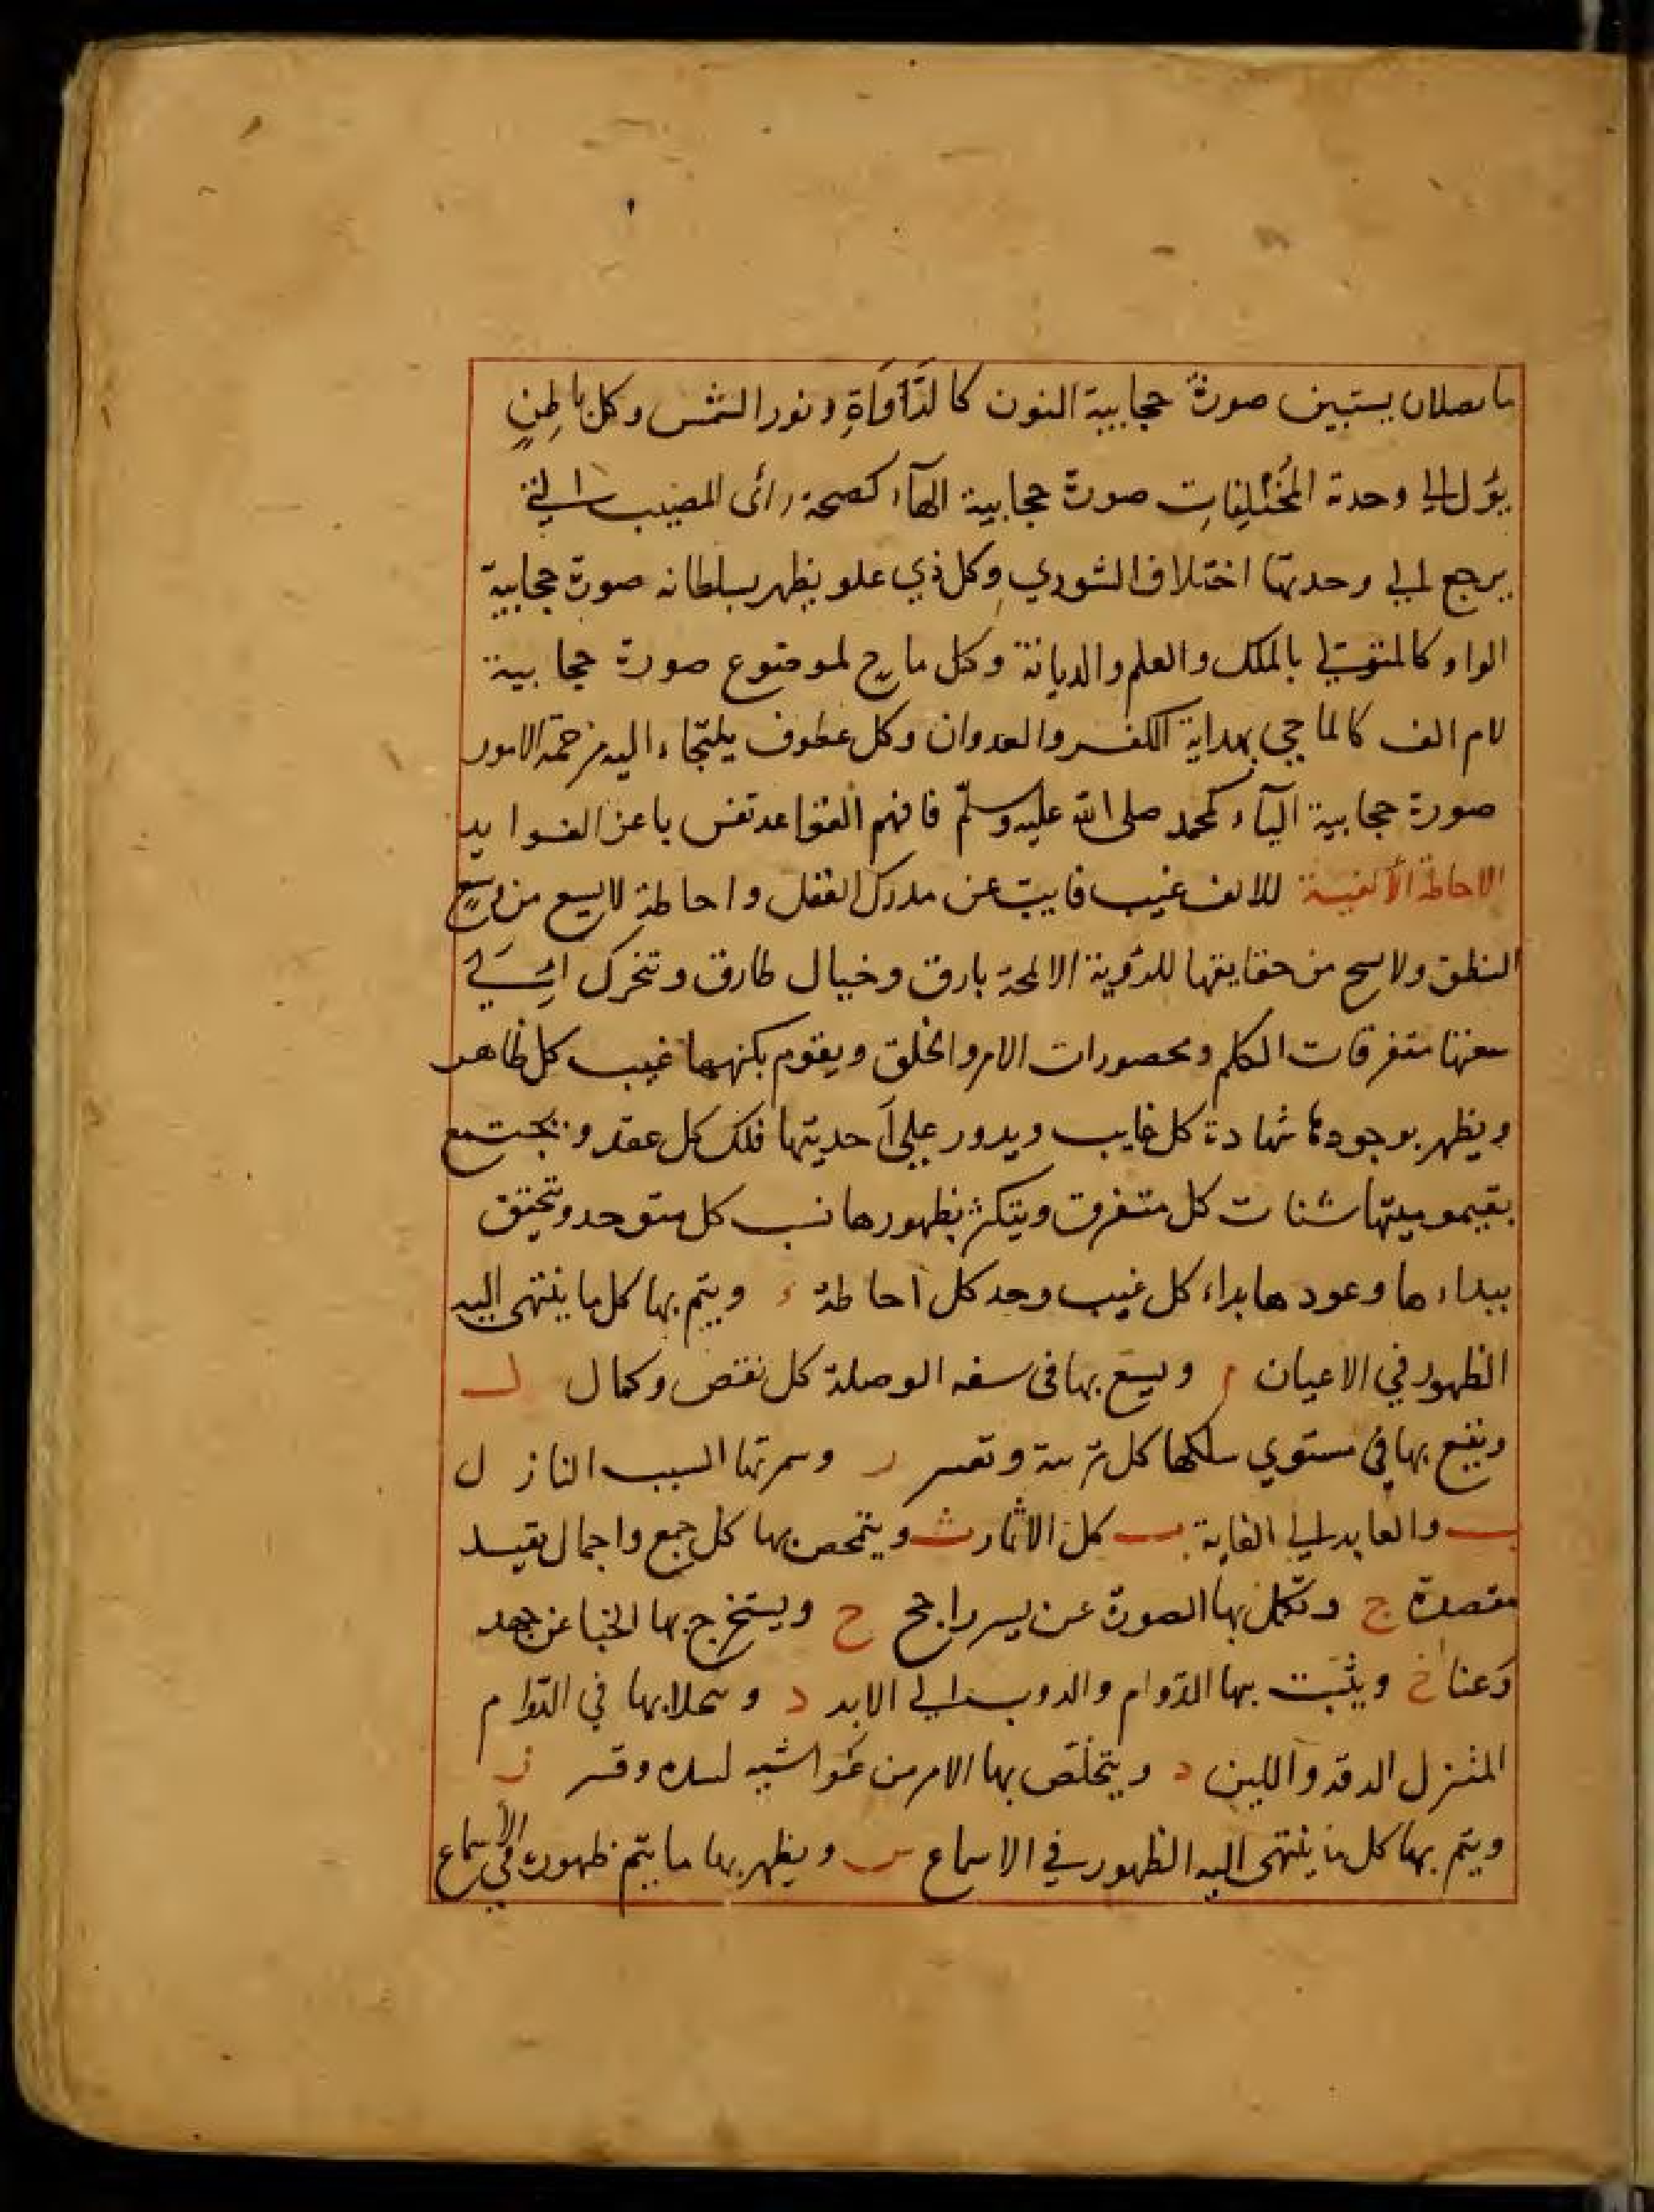 يستبين صورة حجابية النون كالدَّاوَاةِ ونور الشمس وكل باطِنٍ
يؤل الى وحدة المُختلِفاتِ صورة حجابية الهآء كصحة رائ المصيب الذي
يرجع الى وحدتها اختلاف الشوري وكل ذي علو يظهر بسلطانه صورة حجابية
الواو كالمتولي بالملك والعلم والديانة وكل ماح لموضوع صورة حجابية
لام الف كالماحي بهداية الكفر والعدوان وكل عطوف يلتجاء اليه الامور
صورة حجابية اليآء كمحمد صلى الله عليه وسلّم فافهم القواعد تفس باعز الفوايد
الاحاطة الألفية للالف غيب عن مدرك العقل واحاطة لا يسع من وسع
النطق ولا من حقايقها للدرية الا لمحة بارق وخيال طارق وتتحرك
متفرقات الكلم ومحصورات الامر والخلق ويقوم بكنهها غيب كل ظاهر
ويظهر بوجودها شهادة كل غايب ويدور على أحديتها فلك كل عقد ويجتمع
بقيموميتها شتات كل متفرق ويتكثر بظهورها نسب كل متوحد وتحقق
ببداءها وعودها بداء كل غيب وحد كل احاطة ء ويتم بها كل ما ينتهى اليه
الظهور في الاعيان م ويسع بها فى سفه الوصلة كل نقص وكمال ل
بها في مستوي ملكها كل وتفسر ر السبب النازل
ب والعايد الى الغاية ب كل الاثمار ث ويتمحص بها كل جمع واجمال
ج وتكمل بها الصورة عن يسر راجح ح ويستخرج بها الخبا عن جهد
وَعنا خ ويثبَت بها الدّوام والدوب الى الابد د بها في الدّوام
المتنزل الدقة واللين ذ ويتخلّص بها الامر من غواشيه وقسر ز
ويتم بها كل ما ينتهى اليه الظهور في الاسماع س ويظهر بها ما يتم ظهوره في الأسماع